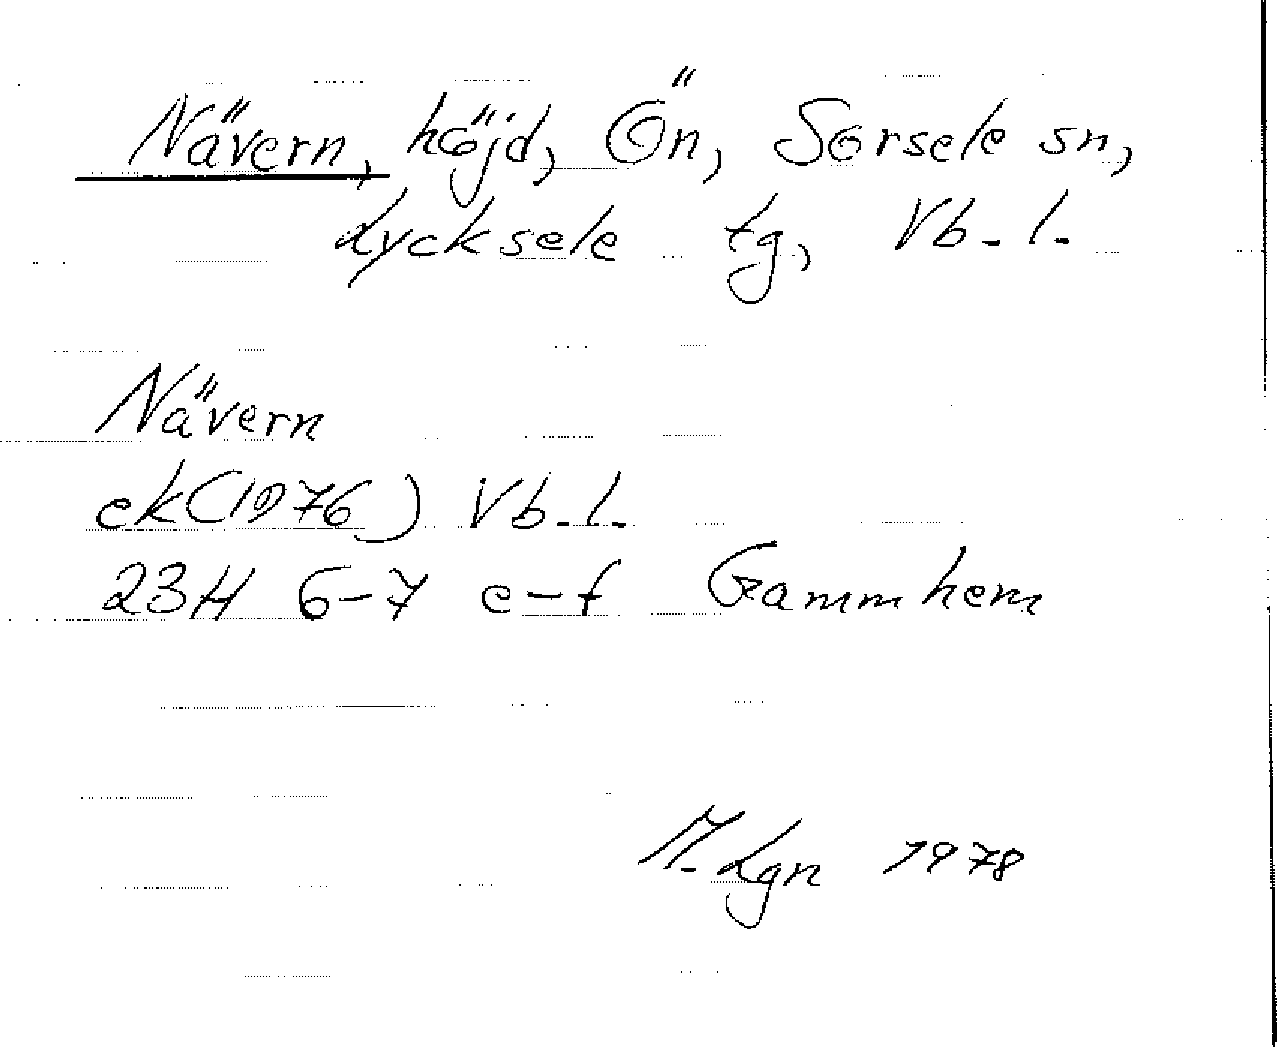 Nävern, höjd, Ön, Sorsele sn,
Lycksele tg, Vb.l.
Nävern
ek(1976) Vb.l.
23H 6-7 e-f Gammhem
M. Lgn 1978